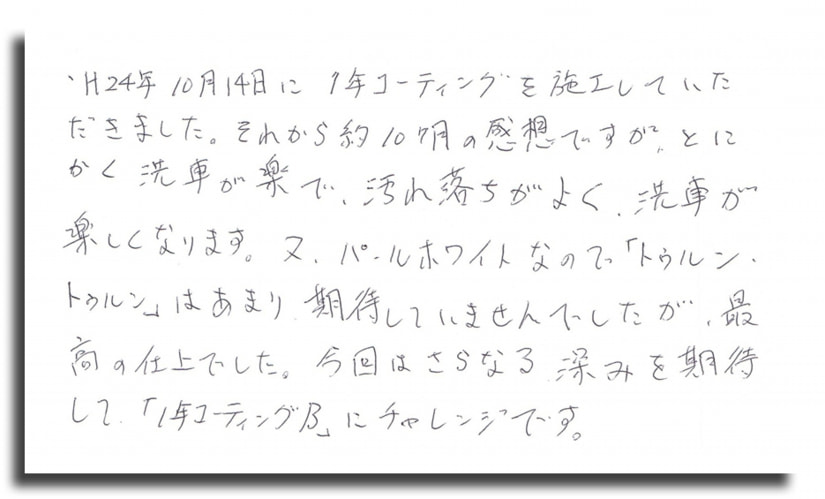 ・H24年10月14日に1年コーティングを施工していた
だきました。それから約10ヶ月の感想ですが、とに
かく洗車が楽で、汚れ落ちがよく、洗車が
楽しくなります。又、パールホワイトなので「トゥルン・
トゥルン」はあまり期待していませんでしたが、最
高の仕上でした。今回はさらなる深みを期待
して、「1年コーティングB」にチャレンジです。